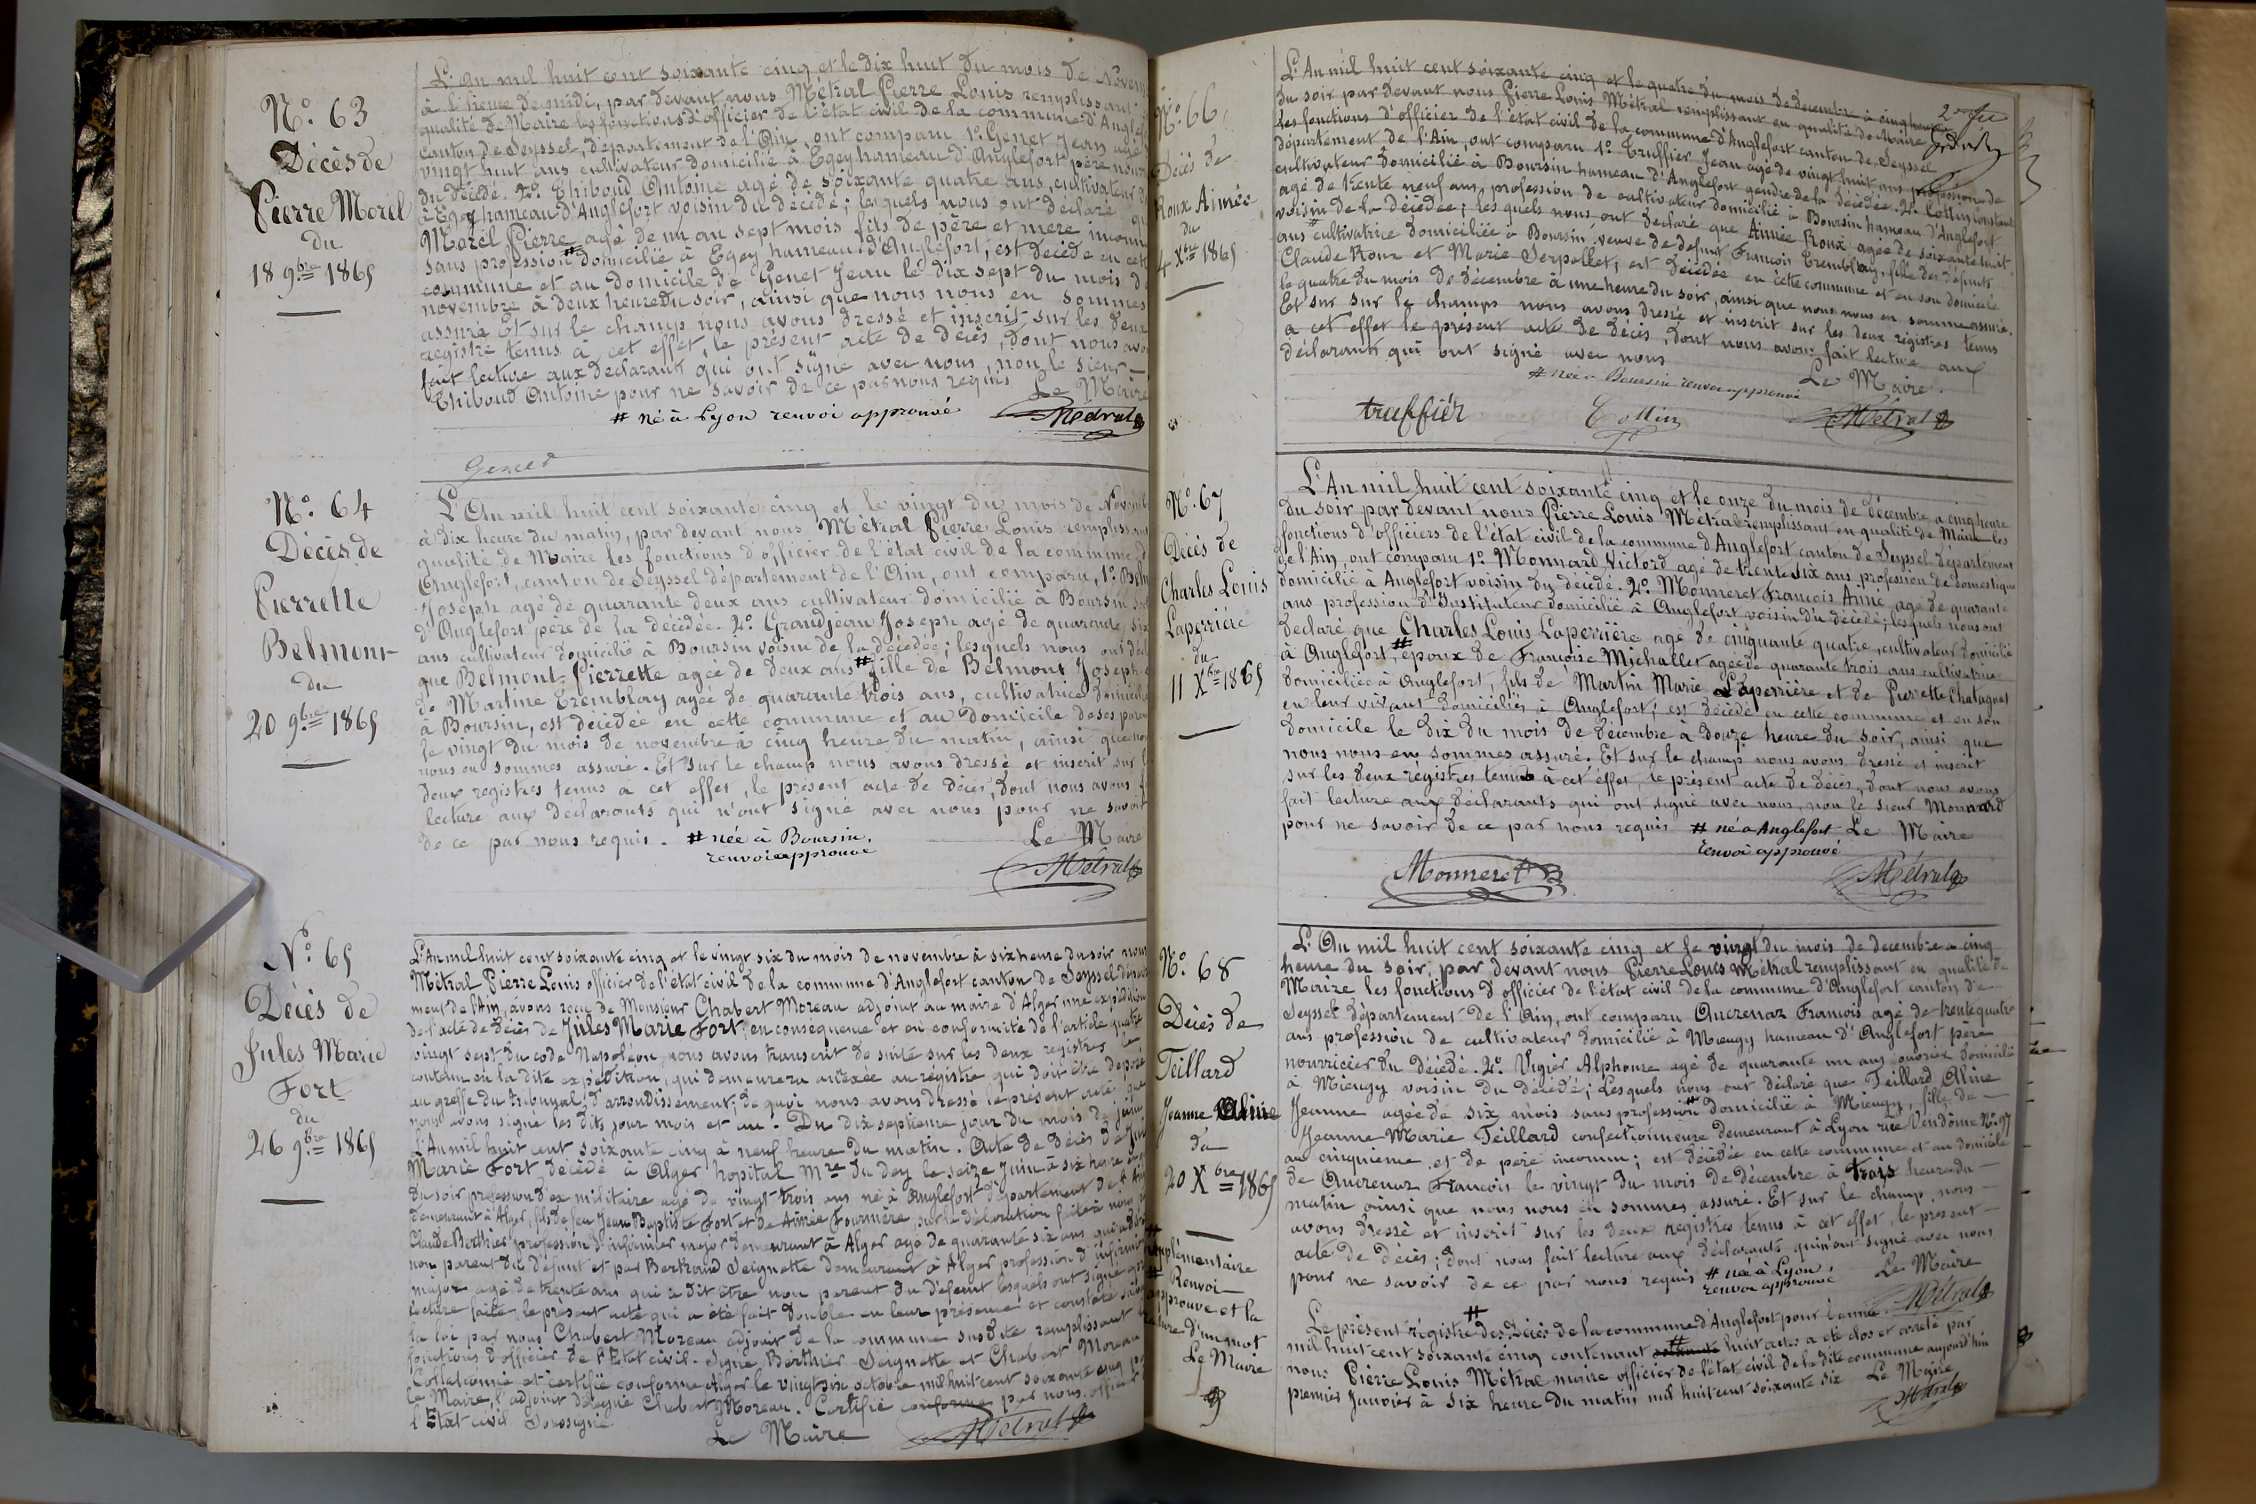 N.º 63
Décès de
Pierre Morel
du
18 9.bre 1865
L'An mil huit cent soixante cinq et le dix huit du mois de Novem
à l'heure de midi, par devant nous Métral Pierre Louis remplissant
qualité de Maire les fonctions d'officier de l'état civil de la commune d'Anglef
canton de Seyssel, département de l'Ain, ont comparu 1.º Genet Jean agé
vingt huit ans cultivateur domicilié à Egey hameau d'Anglefort père nour
du décédé. 2.º Thiboud Antoine agé de soixante quatre ans, cultivateur
à Egey hameau d'Anglefort voisin du décédé; lesquels nous ont déclaré
Morel Pierre agé de un an sept mois fils de père et mere inconn
sans profession # domicilié à Egey hameau d'Anglefort, est décédé en cett
commune et au domicile de Genet Jean le dix sept du mois d
novembre à deux heure du soir, ainsi que nous nous en sommes
assuré Et sur le champ nous avons dressé et inscrit sur les deux
registre tenus à cet effet, le présent acte de décès, dont nous avo
fait lecture aux déclarants qui ont signé avec nous, non le sieur
Thiboud Antoine pour ne savoir de ce par nous requis Le Maire
# né à Lyon renvoi approuvé Métral
Genet
N.º 64
Décès de
Pierrette
Belmont
du
20 9.bre 1865
L'An mil huit cent soixante cinq et le vingt du mois de Novem
à dix heure du matin, par devant nous Métral Pierre Louis remplissan
qualité de Maire les fonctions d'officier de l'état civil de la commune d
Anglefort, canton de Seyssel département de l'Ain, ont comparu, 1.º Belm
Joseph agé de quarante deux ans cultivateur domicilié à Boursin
d'Anglefort père de la décédée. 2.º Grandjean Joseph agé de quarante six
ans cultivateur domicilié à Boursin voisin de la décédée; lesquels nous ont décl
que Belmont Pierrette agée de deux ans # fille de Belmont Joseph
de Martine Tremblay agée de quarante trois ans, cultivatrice domicil
à Boursin, est décédée en cette commune et au domicile de ses paren
le vingt du mois de novembre à cinq heure du matin, ainsi que no
nous en sommes assuré. Et sur le champ nous avons dressé et inscrit sur l
deux registres tenus à cet effet, le présent acte de décès, dont nous avons f
lecture aux déclarants qui n'ont signé avec nous pour ne savoir
de ce par nous requis. # née à Boursin. Le Maire
renvoi approuvé Métral
N.º 65
Décès de
Jules Marie
Fort
du
26 9.bre 1865
L'An mil huit cent soixante cinq et le vingt six du mois de novembre à six heure du soir nous
Métral Pierre Louis officier de l'état civil de la commune d'Anglefort canton de Seyssel départ
ment de l'Ain, avons reçu de Monsieur Chabert Moreau adjoint au maire d'Alger une expédition
de l'acte de décès de Jules Marie Fort, en conséquence et en conformité de l'article quatre
vingt sept du code Napoléon, nous avons transcrit de suite sur les deux registres le
contenu en la dite expédition, qui demeurera annexée au registre qui doit être déposé
au greffe du tribunal d'arrondissement; de quoi nous avons dressé le présent acte que
nous avons signé les dits jour mois et an. Du dix septième jour du mois de juin
L'An mil huit cent soixante cinq à neuf heure du matin. Acte de décès de Jul
Marie Fort décédé à Alger hopital Mre du dey le seize Juin à six heure
du soir profession d'ex militaire agé de vingt trois ans né à Anglefort département de l'Ain
demeurant à Alger, fils de feu Jean Baptiste Fort et de Aimée Fournière, sur la déclaration faite à nous
Claude Berthier profession d'infirmier major demeurant à Alger agé de quarante six ans qui a dit
non parent du défunt et par Bertrand Seignette demeurant à Alger profession d'infirmier
major agé de trente ans qui a dit être non parent du défunt lesquels ont signé
lecture faite le présent acte qui a été fait double en leur présence et constaté
la loi par nous Chabert Moreau adjoint de la commune susdite remplissant
fonctions d'officier de l'Etat civil. Signé Berthier Seignette et Chabert Moreau
Collationné et certifié conforme Alger le vingt six octobre mil huit cent soixante cinq p
le Maire, l'adjoint délégué Chabert Moreau. Certifié conforme par nous officier
l'Etat civil Soussigné.
Le Maire Métral
2e feu
N.º 66
Décès de
Roux Aimée
du
4 Xbre 1865
L'An mil huit cent soixante cinq et le quatre du mois de decembre à cinq heure
du soir par devant nous Pierre Louis Métral remplissant en qualité de Maire
les fonctions d'officier de l'état civil de la commune d'Anglefort canton de Seyssel
département de l'Ain, ont comparu 1.º Truffier Jean agé de vingt huit ans profession de
cultivateur domicilié à Boursin hameau d'Anglefort gendre de la décédée. 2.º Collin Constant
agé de trente neuf ans, profession de cultivateur domicilié à Boursin hameau d'Anglefort
voisin de la décédée; les quels nous ont declaré que Aimée Roux agée de soixante huit
ans # cultivatrice domiciliée à Boursin veuve de défunt François Tremblay, fille des défunts
Claude Roux et Marie Serpollet, est décédée en cette commune et en son domicile
le quatre du mois de décembre à une heure du soir, ainsi que nous nous en somme assuré.
Et sur sur le champs nous avons dressé et inscrit sur les deux régistres tenus
à cet effet le présent acte de décès, dont nous avons fait lecture aux
déclarants qui ont signé avec nous
# née à Boursin renvoi approuvé Le Maire.
truffier Collin Métral
N.º 67
Décès de
Charles Louis
Laperrière
du
11 Xbre 1865
L'An mil huit cent soixante cinq et le onze du mois de décembre a cinq heure
du soir par devant nous Pierre Louis Métral remplissant en qualité de Maire les
fonctions d'officiers de l'état civil de la commune d'Anglefort canton de Seyssel département
de l'Ain, ont comparu 1.º Monnard Victord agé de trente six ans profession de domestique
domicilié à Anglefort voisin du décédé. 2.º Monneret François Aimé, agé de quarante
ans profession d'Instituteur domicilié à Anglefort voisin du décédé; lesquels nous ont
declaré que Charles Louis Laperrière agé de cinquante quatre, cultivateur domicilié
à Anglefort, # époux de Françoise Michallet agée de quarante trois ans cultivatrice
domiciliée à Anglefort, fils de Martin Marie Laperrière et de Pierrette Chatagnat
en leur vivant domiciliés à Anglefort, est décédé en cette commune et en son
domicile le dix du mois de decembre à douze heure du soir, ainsi que
nous nous en sommes assuré. Et sur le champ nous avons dressé et inscrit
sur les deux régistres tenus à cet effet, le présent acte de décès, dont nous avons
fait lecture aux déclarants qui ont signé avec nous, non le sieur Monnard
pour ne savoir de ce par nous requis # né à Anglefort Le Maire
renvoi approuvé
Monneret Métral
N.º 68
Décès de
Teillard
Jeanne Aline
du
20 Xbre 1865
L'An mil huit cent soixante cinq et le vingt du mois de decembre a cinq
heure du soir, par devant nous Pierre Louis Métral remplissant en qualité de
Maire les fonctions d'officier de l'état civil de la commune d'Anglefort canton de
Seyssel département de l'Ain, ont comparu Ancrenaz François agé de trente quatre
ans profession de cultivateur domicilié à Mieugy hameau d'Anglefort père
nourricier du décédé. 2.º Vigier Alphonse agé de quarante un ans ouvrier domicilié
à Mieugy voisin du décédé; Lesquels nous ont déclaré que Teillard Aline
Jeanne agée de six mois sans profession # domicilié à Mieugy, fille de
Jeanne Marie Teillard confectionneuse demeurant à Lyon rue Vendôme N.º 97
au cinquième et de père inconnu; est décédée en cette commune et au domicile
de Ancrenaz François le vingt du mois de décembre à trois heure du
matin ainsi que nous nous en sommes assuré. Et sur le champ, nous
avons dressé et inscrit sur les deux registres tenus à cet effet, le présent
acte de décès; dont nous fait lecture aux déclarants qui n'ont signé avec nous
pour ne savoir de ce par nous requis # née à Lyon Le Maire
renvoi approuvé Métral
Le présent régistre # des Décès de la commune d'Anglefort pour l'année
mil huit cent soixante cinq contenant soixante # huit actes a été clos et arreté par
nous Pierre Louis Métral maire officier de l'état civil de la dite commune aujourd'hui
premier Janvier à six heure du matin mil huit cent soixante six Le Maire
Métral
#
plémentaire
# Renvoi
approuvé et la
ture d'un mot
Le Maire